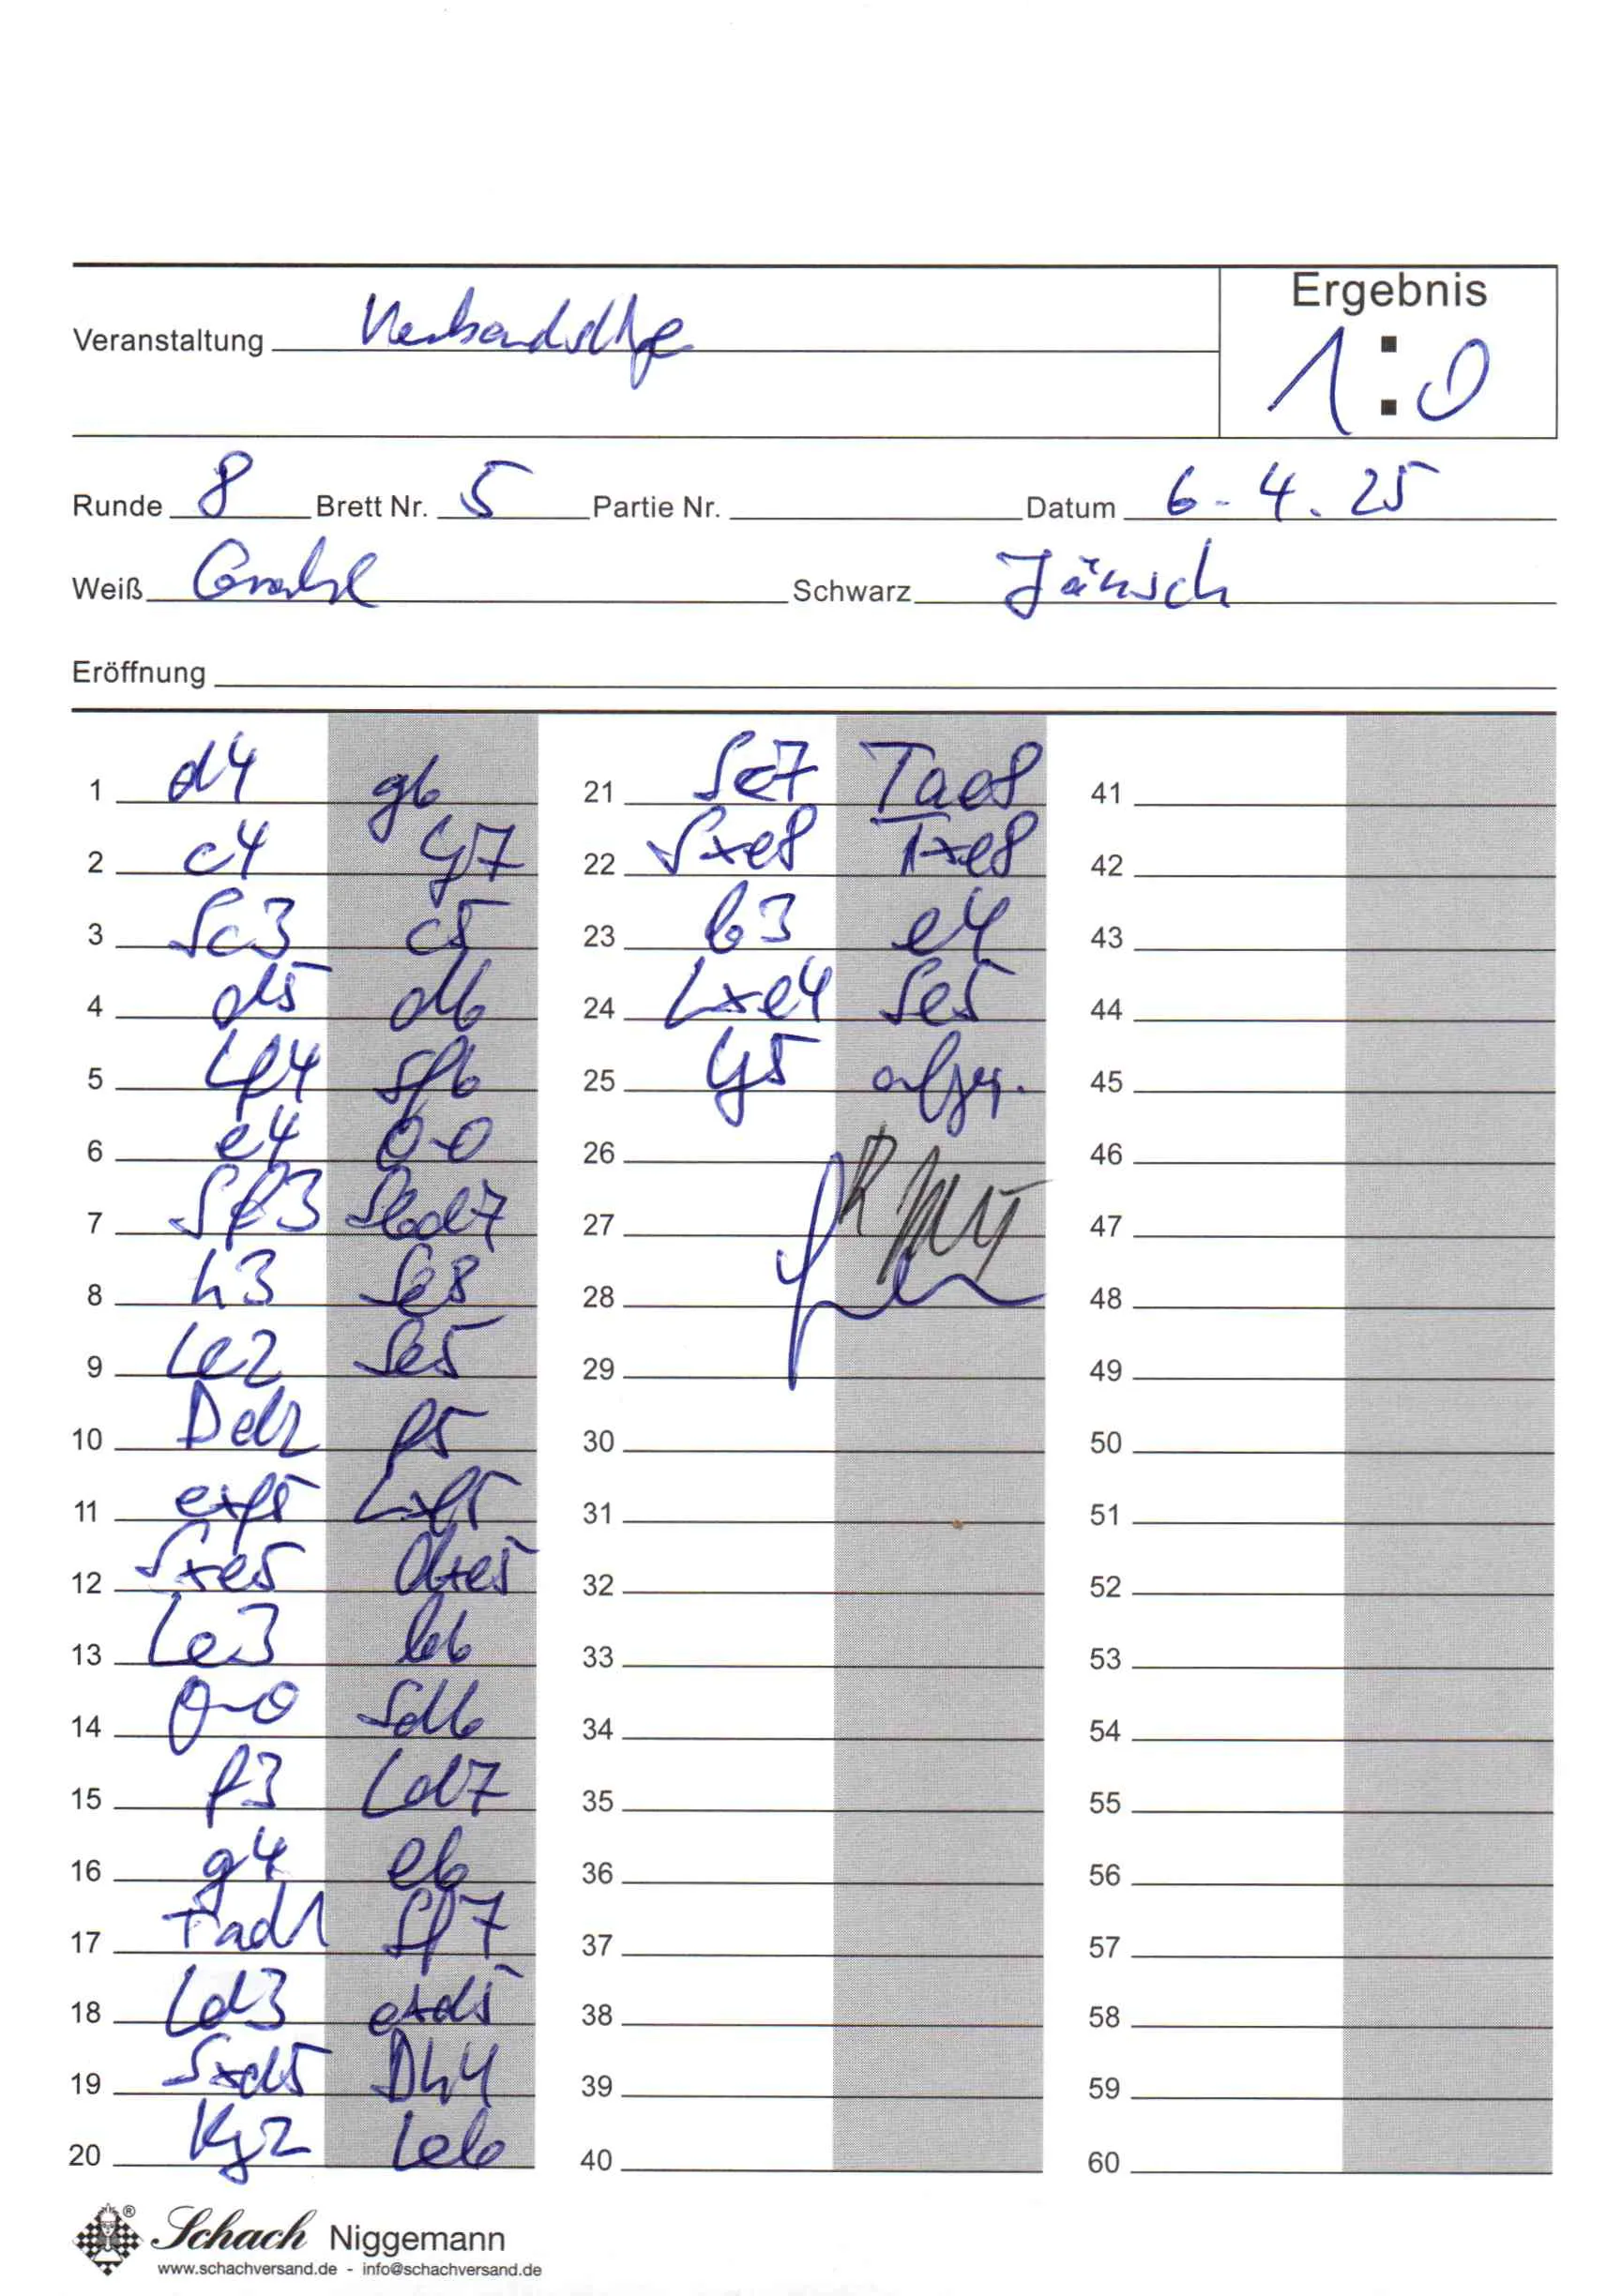 Ergebnis
Veranstaltung Verbandsliga
1:0
Runde 8 Brett Nr. 5 Partie Nr. Datum 6.4.25
Weiß Schwarz Jänsch
Eröffnung
1 d4 g6 21 Sc7 Tae8 41
2 c4 Lg7 22 Sxe8 Txe8 42
3 Sc3 c5 23 b3 e4 43
4 d5 d6 24 Lxe4 Se5 44
5 Lf4 Sf6 25 Lg5 aufgeg. 45
6 e4 0-0 26 46
7 Sf3 Sbd7 27 47
8 h3 Se8 28 48
9 Le2 Se5 29 49
10 Dd2 f5 30 50
11 exf5 Lxf5 31 51
12 Sxe5 dxe5 32 52
13 Le3 b6 33 53
14 0-0 Sd6 34 54
15 f3 Ld7 35 55
16 g4 e6 36 56
17 Tad1 Sf7 37 57
18 Ld3 exd5 38 58
19 Sxd5 Dh4 39 59
20 Kg2 Le6 40 60
Schach Niggemann
www.schachversand.de - info@schachversand.de